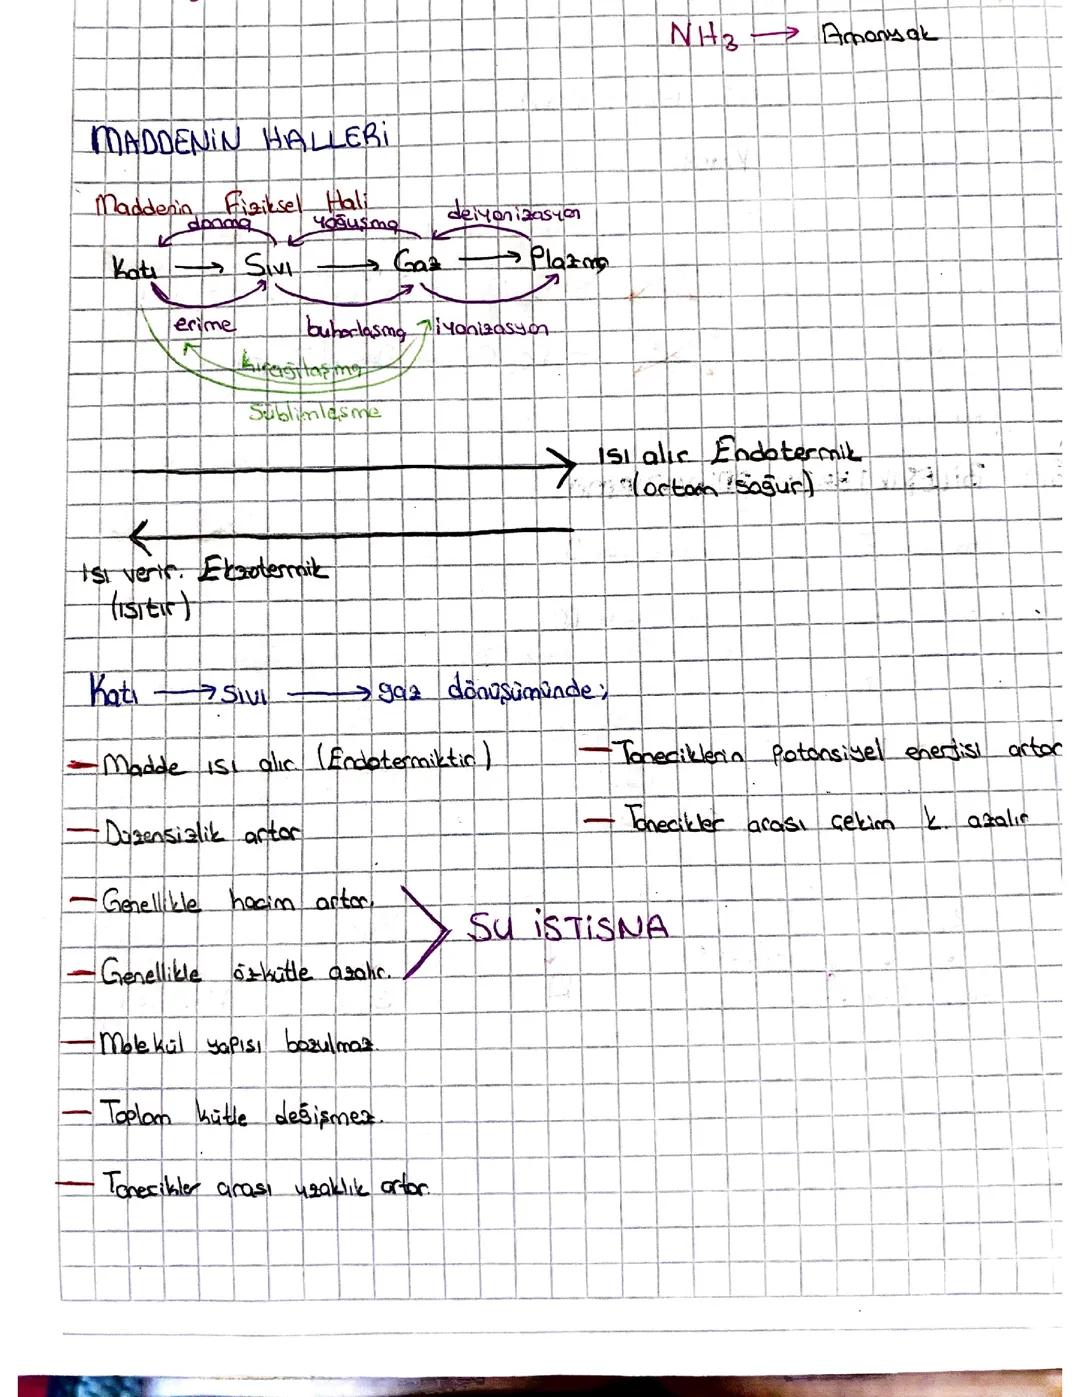 NH3 → Amonyak
MADDENİN HALLERİ
Maddenin Fiziksel Hali
donma yoğuşma deiyonizasyon
Katı → Sıvı → Gaz → Plazma
erime buharlaşma iyonizasyon
Kırağılaşma
Süblimleşme
ısı alır Endotermik
(ortam soğur)
ısı verir. Ekzotermik
(ısıtır)
Katı → sıvı → gaz dönüşümünde;
- Madde ısı alır (Endotermiktir)
- Taneciklerin Potansiyel enerjisi artar
- Düzensizlik artar
- Tanecikler arası çekim k. azalır
- Genellikle hacim artar.
SU İSTİSNA
- Genellikle özkütle azalır.
- Molekül yapısı bozulmaz.
- Toplam kütle değişmez.
- Tanecikler arası uzaklık artar.